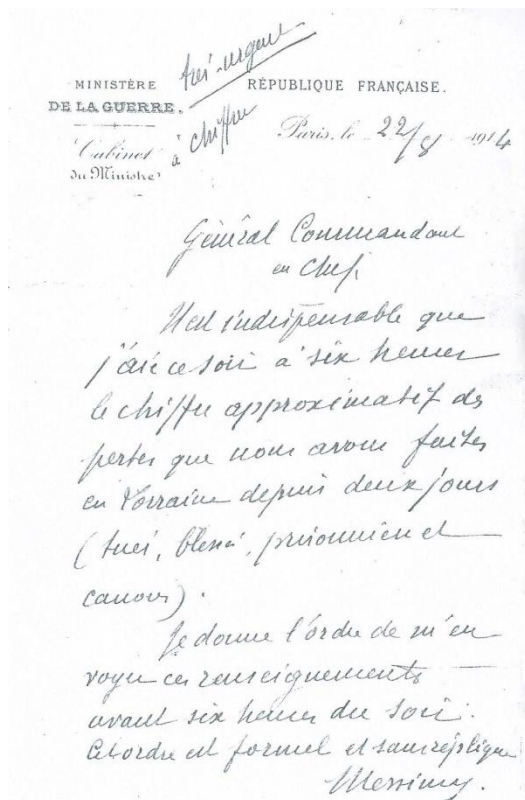 très-urgent
à chiffrer
MINISTÈRE
DE LA GUERRE.
Cabinet
du Ministre
RÉPUBLIQUE FRANÇAISE.
Paris, le 22/8 1914
Général Commandant
en Chef,
Il est indispensable que
j'aie ce soir à six heures
le chiffre approximatif des
pertes que nous avons faites
en Lorraine depuis deux jours
(tués, blessés, prisonniers et
canons).
Je donne l'ordre de m'en
voyer ces renseignements
avant six heures du soir.
Cet ordre est formel et sans réplique
Messimy.